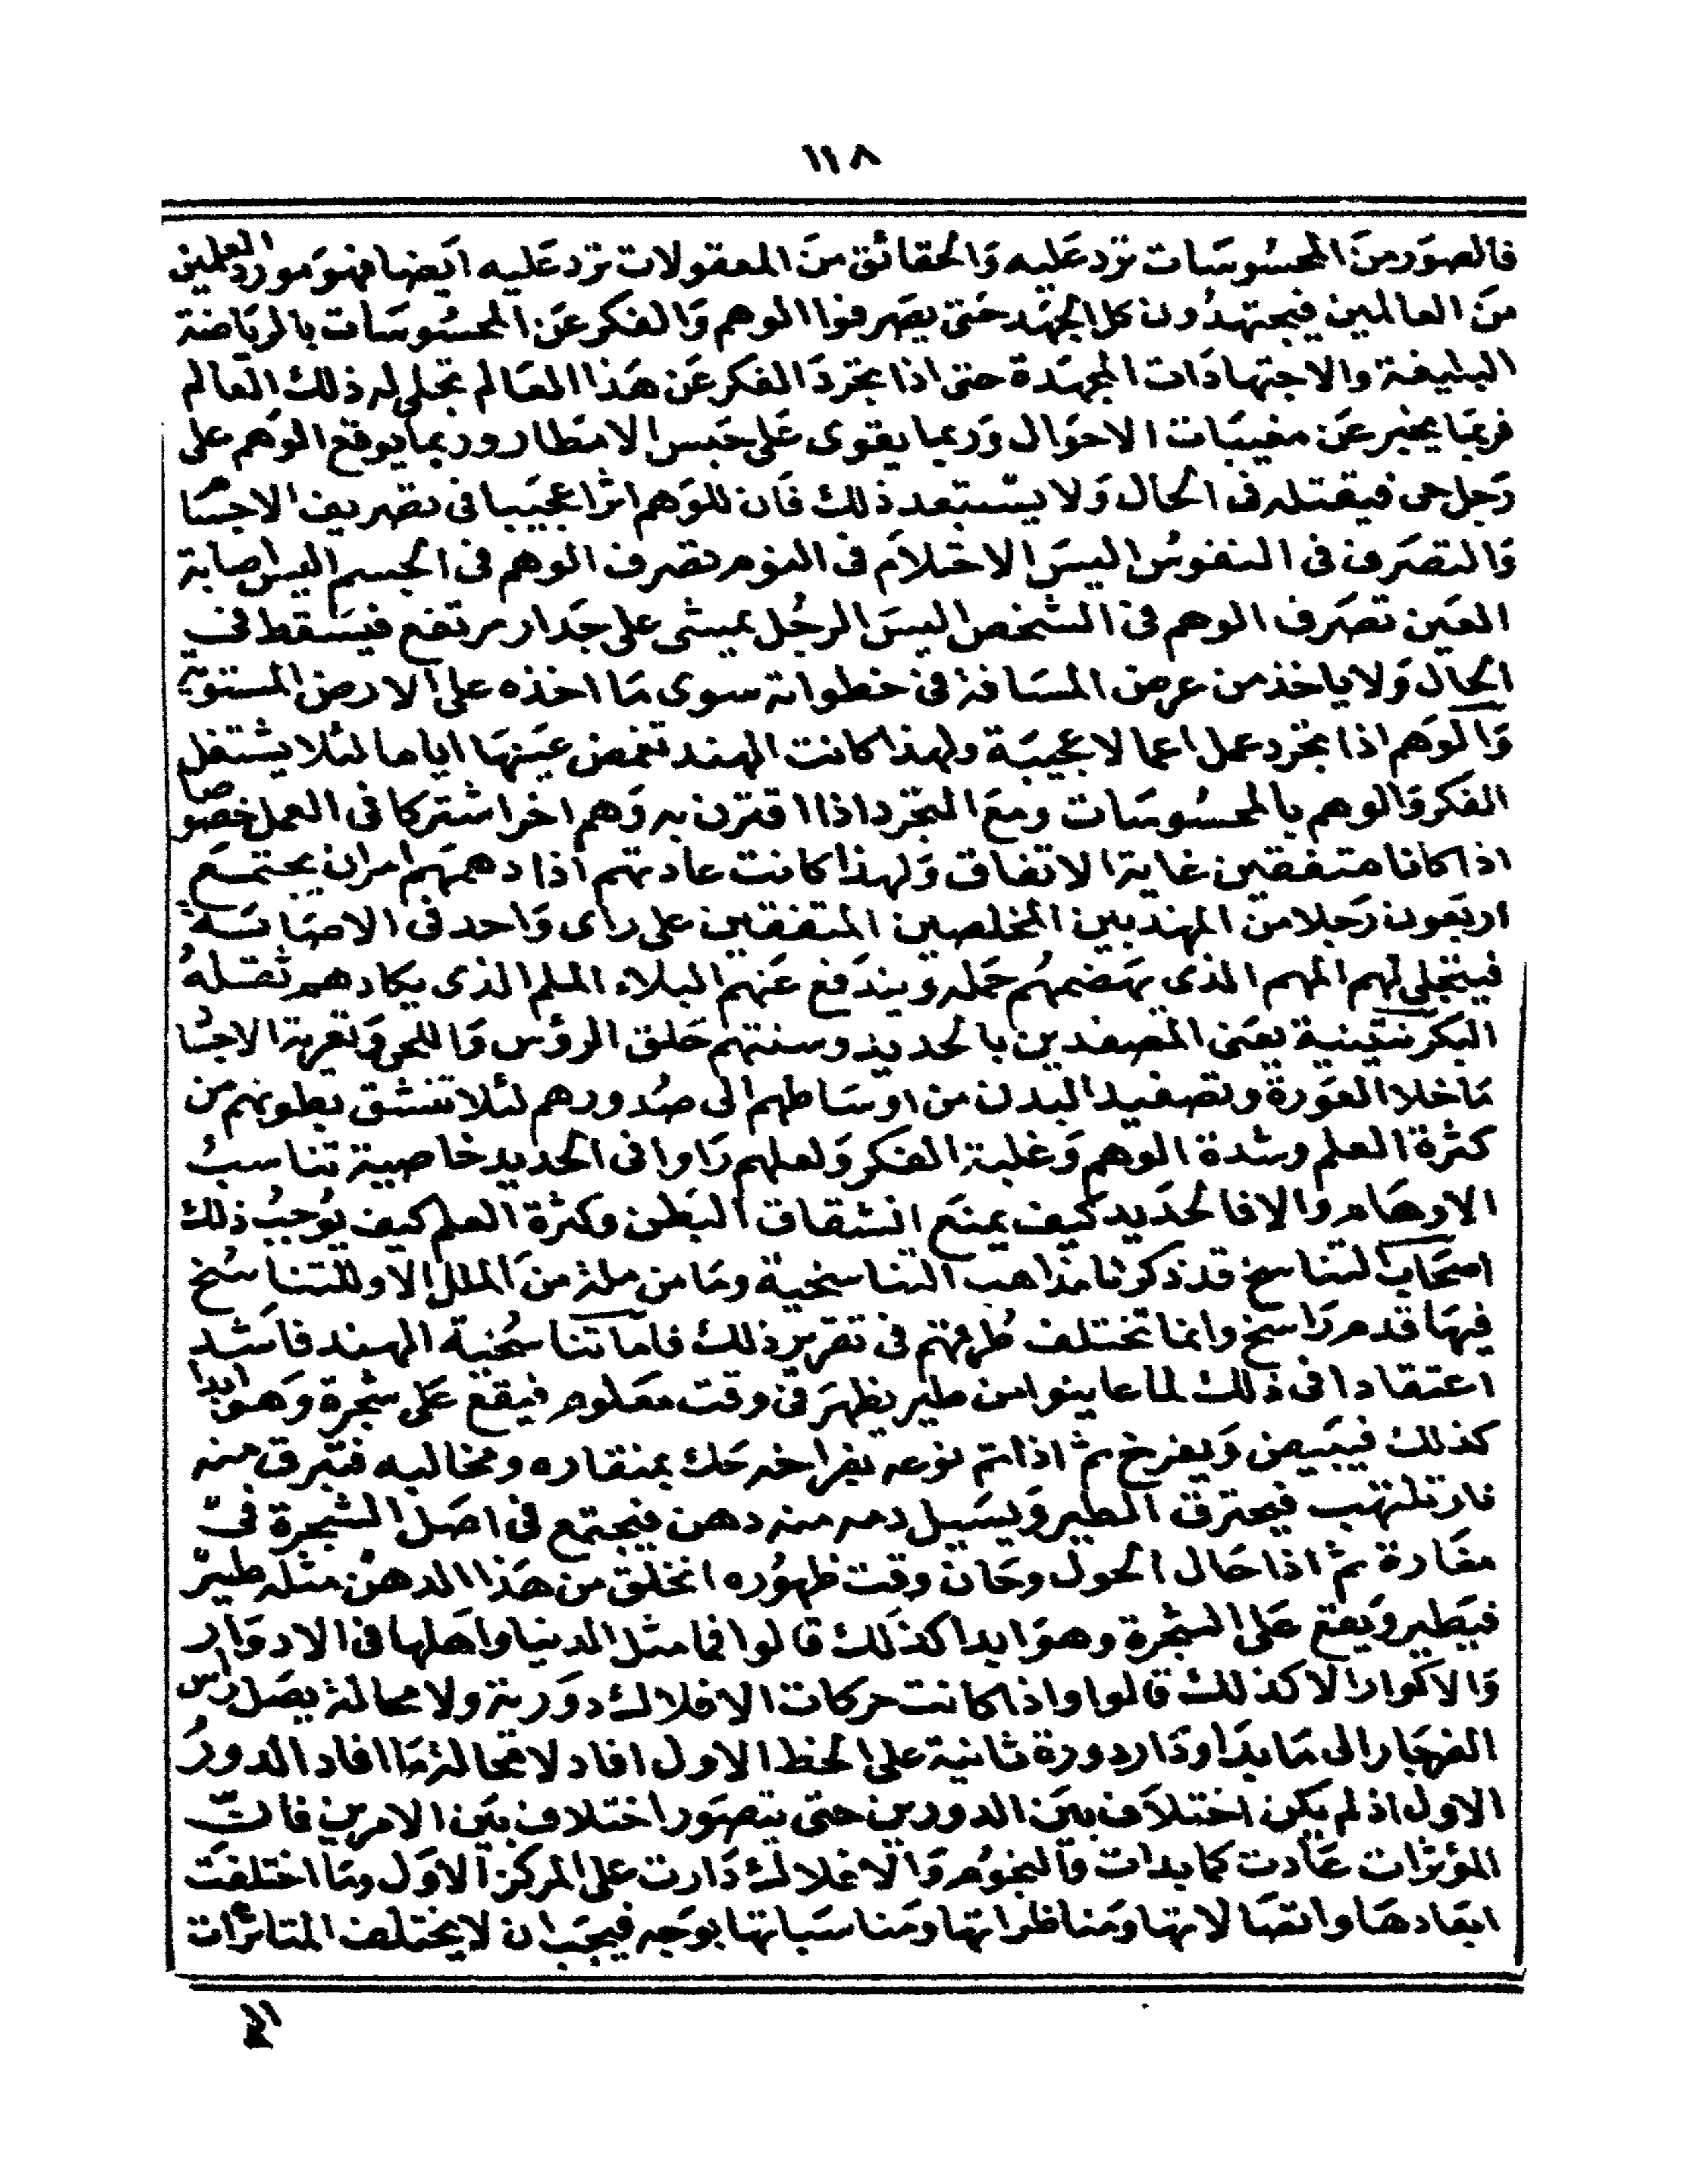 ١١٨
فالصوَر منَ المحسُوسَات ترد عَليه وَالحقائق منَ المعقولات ترد عَليه ايَضا فهوَ مورد العلمين
منَ العالمين فيجتهدُون كل الجهَد حَتى يصَرفوا الوهم وَالفكر عَن المحسُوسَات بالريَاضة
البليغة والاجتهادَات المجهَدة حتى اذا تجردَ الفكر عَن هَذا العَالم تجلى له ذلك العَالم
فربمَا يخبر عَن مغيبَات الاحوَال وَربما يقوى عَلى حَبس الامطار وربما يوقع الوَهم على
رَجل حى فيقتله فى الحال وَلا يستبعد ذلك فَان للوَهم اثرا عجيَبا فى تصريف الاجسَام
وَالتصَرف فى النفوسُ اليسَ الاحتلاَم فى النوم تصرف الوهم فى الجسم اليس اصابة
العَين تصَرف الوهم فى الشخص اليسَ الرجُل يمشى على جَدار مرتفع فيسَقط فى
الحال وَلا ياخذ من عرض المسَافة فى خطواته سوى مَا اخذه على الارض المستوية
وَالوَهم اذا تجرد عمل اعمالا عجيبَة ولهذا كانت الهند تغمض عَينهَا اياما لئلا يشتغل
الفكر وَالوهم بالمحسُوسَات ومعَ التجرد اذا اقترن به وَهم اخر اشتركا فى العمل خصوصا
اذا كانا متفقين غاية الاتفاق وَلهذا كانت عادتهم اذا دهمَهم امران يجتمَع
اربعَون رَجلا من المهندبين المخلصين المتفقين على راى وَاحد فى الاصَابَة
فيتجلى لهم المهم الذى يهَضمهُم حَمله ويندَفع عَنهم البلاء الملم الذى يكادهم ثقله
البكرنتينية يعَنى المصفدين بالحديد وسنتهم حَلق الرؤس وَاللحى وَتعرية الاجساد
مَا خلا العوَرة وتصفيد البدن من اوسَاطهم الى صُدورهم لئلا تنشق بطونهم من
كثرة العلم وشدة الوهم وَغلبة الفكر وَلعلهم رَاوا فى الحديد خاصية تناسبُ
الاوهَام والا فالحدَيد كيف يمنَع انشقاق البَطن وكثرة العلم كيف يوُجبُ ذلك
اصحَاب التناسخ قد ذكرنا مذاهب التناسخية ومَا من ملة منَ الملل الا وللتناسُخ
فيهَا قدم رَاسخ وانما تختلف طُرقهم فى تقرير ذلك فاما تناسُخية الهند فاَشد
اعتقادا فى ذلك لما عاينوا من طير يظهَر فى وقت معَلوم فيقع عَلى شجرة وَهو ابدا
كذلك فيبَيض وَيفرخ ثم اذا تم نوعه بفراخه حَك بمنقاره ومخالبه فتبرق منه
نار تلتهب فيحترق الطير وَيسَيل دمه منه دهن فيجتمع فى اصَل الشجرة فى
مغَارة ثم اذا حَال الحول وحَان وقت ظهوُره انخلق من هَذا الدهن مثله طير
فيَطير وَيقع عَلى الشجرة وهوَ ابدا كذلك قالوا فما مثل الدنيا واَهلها فى الادوَار
وَالاكوار الا كذلك قالوا واذا كانت حركات الافلاك دوَرية ولا محالة يصَل راس
الفرجَار الى مَا بدَا ودَار دورة ثانية على الخط الاول افاد لا محَالة مَا افاد الدورُ
الاول اذ لم يكن اختلاَف بينَ الدورين حتى يتصَور اختلاف بيَن الامرين فان
المؤثرات عَادت كما بدات وَالنجوُم وَالافلاك دَارت على المركز الاوَل ومَا اختلفَت
ابعَادهَا واتصَالاتها ومَناظراتها ومَناسَباتها بوَجه فيجَب ان لا يختلف المتاثرات